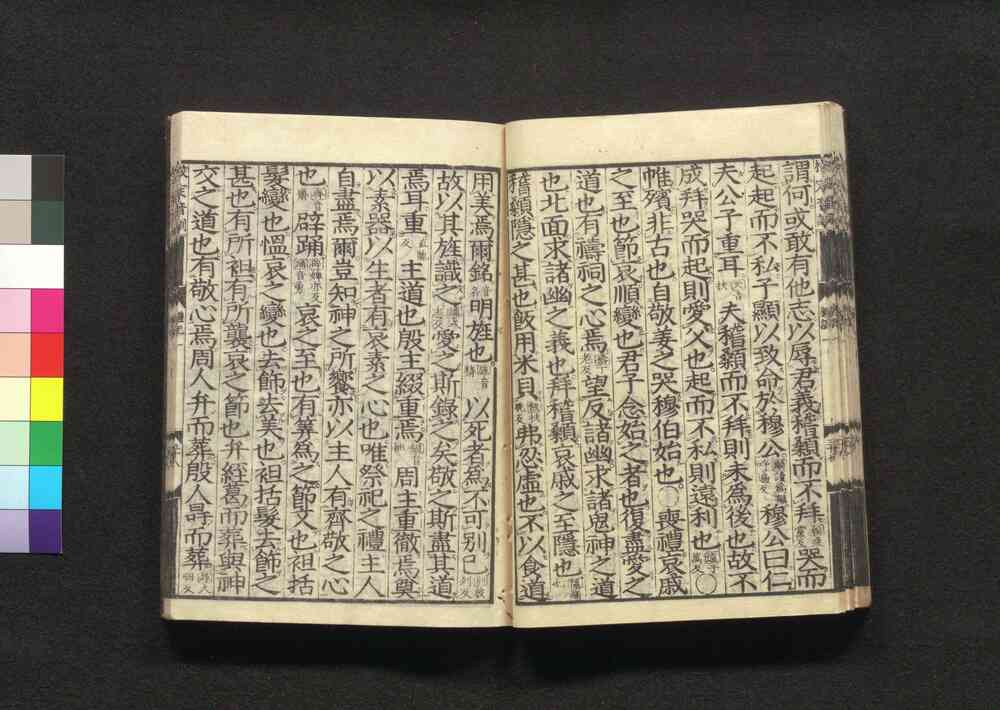 謂何或敢有他志以辱君義稽顙而不拜哭而
起起而不私子顯以致命於穆公穆公曰仁
夫公子重耳夫稽顙而不拜則未為後也故不
成拜哭而起則愛父也起而不私則遠利也○
帷殯非古也自敬姜之哭穆伯始也○喪禮哀戚
之至也節哀順變也君子念始之者也復盡愛之
道也有禱祠之心焉望反諸幽求諸鬼神之道
也北面求諸幽之義也拜稽顙哀戚之至隱也
稽顙隱之甚也飯用米貝弗忍虛也不以食道
用美焉爾銘明旌也以死者為不可別已
故以其旌識之愛之斯錄之矣敬之斯盡其道
焉耳重主道也殷主綴重焉周主重徹焉奠
以素器以生者有哀素之心也唯祭祀之禮主人
自盡焉爾豈知神之所饗亦以主人有齊敬之心
也辟踊哀之至也有筭為之節文也袒括
髮變也慍哀之變也去飾去美也袒括髮去飾之
甚也有所袒有所襲哀之節也弁絰葛而葬與神
交之道也有敬心焉周人弁而葬殷人冔而葬